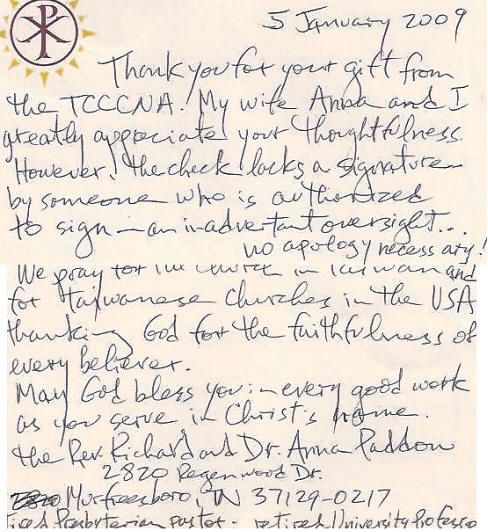 5 January 2009
Thank you for your gift from
the TCCCNA. My wife Anna and I
greatly appreciate your thoughtfulness.
However, the check lacks a signature
by someone who is authorized
to sign — an inadvertant oversight...
no apology necessary!
We pray for the church in Taiwan and
for Taiwanese churches in the USA
thanking God for the faithfulness of
every believer.
May God bless you in every good work
as you serve in Christ's name.
the Rev. Richard and Dr. Anna Paddon
2820 Regenwood Dr.
Murfreesboro, TN 37129-0217
tired Presbyterian pastor - retired University Professo